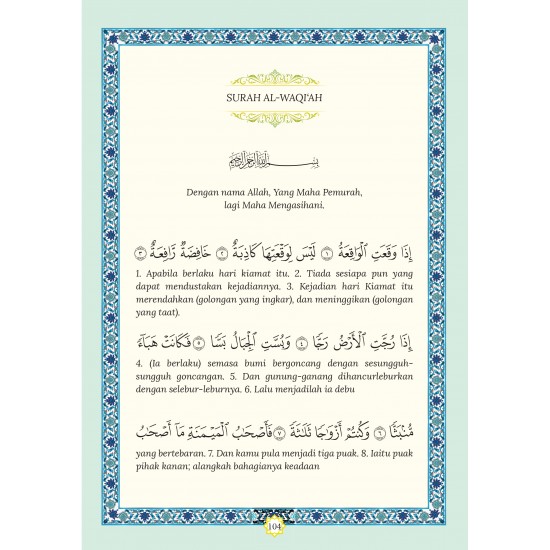 SURAH AL-WAQI'AH
بِسْمِ اللَّهِ الرَّحْمَٰنِ الرَّحِيمِ
Dengan nama Allah, Yang Maha Pemurah,
lagi Maha Mengasihani.
إِذَا وَقَعَتِ ٱلْوَاقِعَةُ ١ لَيْسَ لِوَقْعَتِهَا كَاذِبَةٌ ٢ خَافِضَةٌ رَّافِعَةٌ ٣
1. Apabila berlaku hari kiamat itu. 2. Tiada sesiapa pun yang
dapat mendustakan kejadiannya. 3. Kejadian hari Kiamat itu
merendahkan (golongan yang ingkar), dan meninggikan (golongan
yang taat).
إِذَا رُجَّتِ ٱلْأَرْضُ رَجًّا ٤ وَبُسَّتِ ٱلْجِبَالُ بَسًّا ٥ فَكَانَتْ هَبَآءً
4. (Ia berlaku) semasa bumi bergoncang dengan sesungguh-
sungguh goncangan. 5. Dan gunung-ganang dihancurleburkan
dengan selebur-leburnya. 6. Lalu menjadilah ia debu
مُّنۢبَثًّا ٦ وَكُنتُمْ أَزْوَٰجًا ثَلَٰثَةً ٧ فَأَصْحَٰبُ ٱلْمَيْمَنَةِ مَآ أَصْحَٰبُ
yang bertebaran. 7. Dan kamu pula menjadi tiga puak. 8. Iaitu puak
pihak kanan; alangkah bahagianya keadaan
104